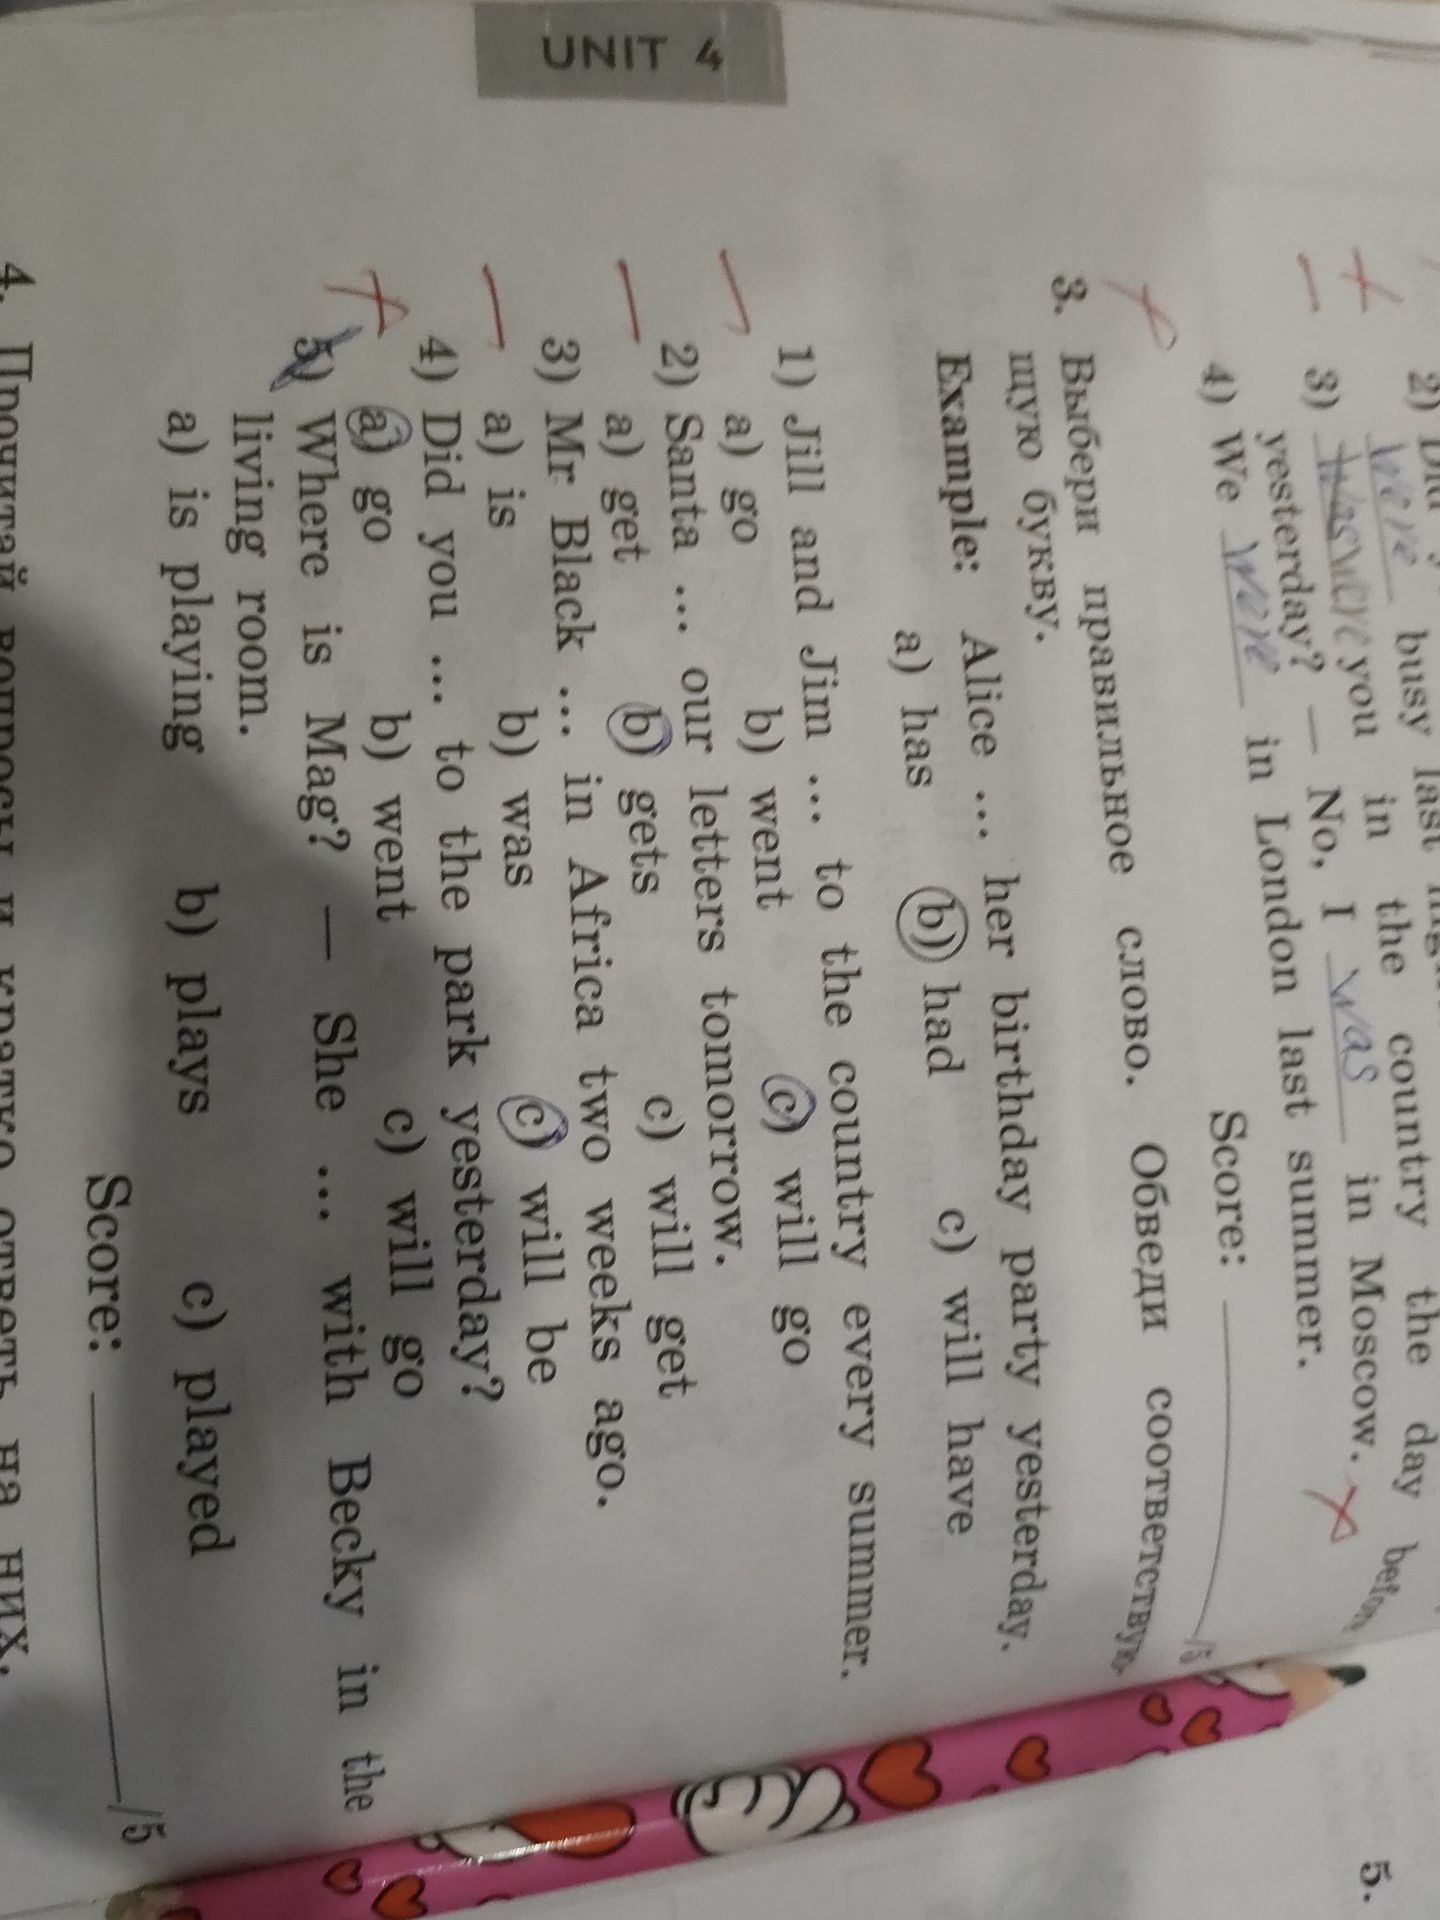 UNIT 4
2)
were busy last
3) was were you in the country the day before
yesterday? — No, I was in Moscow.
4) We were in London last summer.
Score: /5
3. Выбери правильное слово. Обведи соответствую-
щую букву.
Example: Alice ... her birthday party yesterday.
a) has b) had c) will have
1) Jill and Jim ... to the country every summer.
a) go b) went c) will go
2) Santa ... our letters tomorrow.
a) get b) gets c) will get
3) Mr Black ... in Africa two weeks ago.
a) is b) was c) will be
4) Did you ... to the park yesterday?
a) go b) went c) will go
5) Where is Mag? — She ... with Becky in the
living room.
a) is playing b) plays c) played
Score: /5
4. Прочитай вопросы и кратко ответь на них.
5.